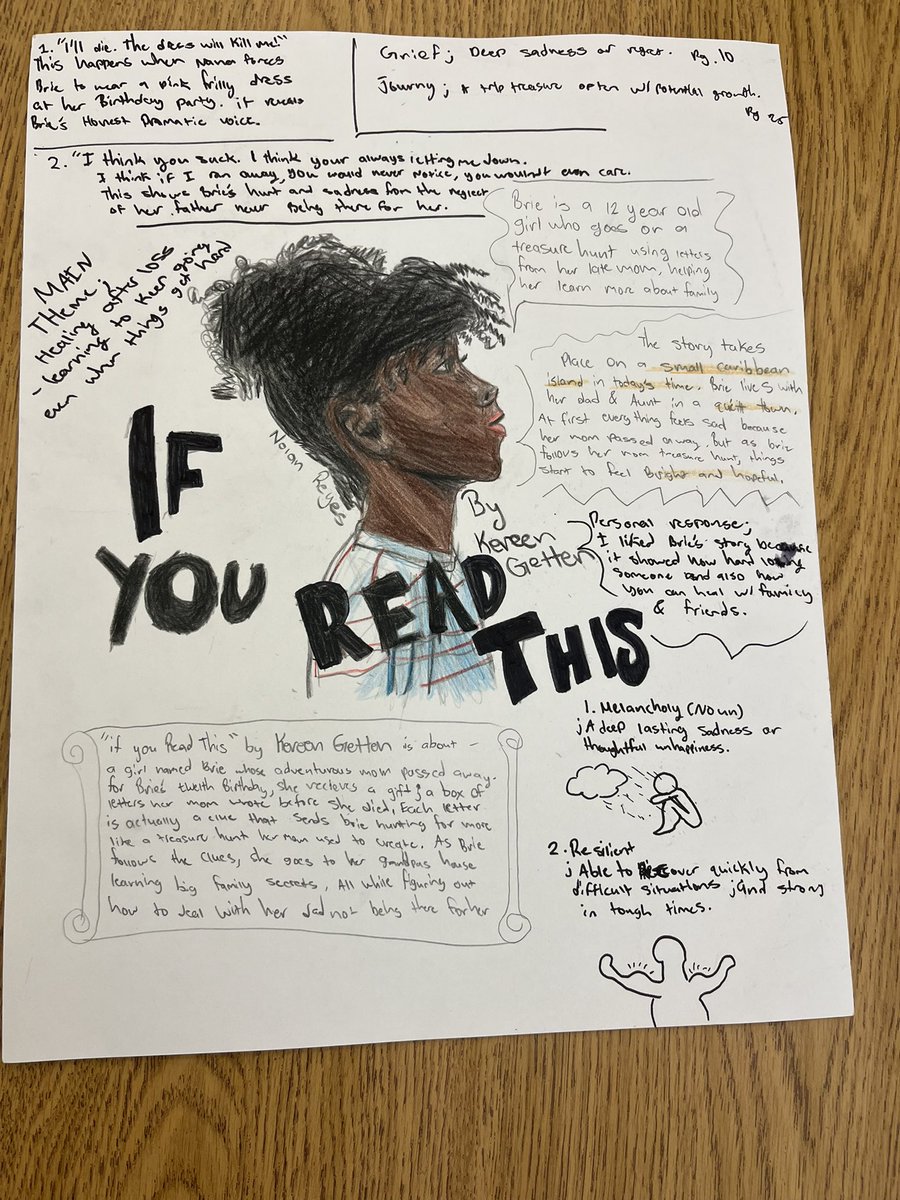 1. "I'll die. The dress will kill me!"
This happens when Nana forces
Brie to wear a pink frilly dress
at her Birthday party. it reveals
Brie's Honest Dramatic voice.
Grief; Deep sadness or regret. Pg. 10
Journy; A trip treasure often w/potential growth.
Pg 25
2. "I think you suck. I think your always letting me down.
I think if I ran away, you would never notice, you wouldn't even care.
This shows Brie's hurt and sadness from the neglect
of her father never Being there for her.
Brie is a 12 year old
girl who goes on a
treasure hunt using letters
from her late mom, helping
her learn more about family
MAIN
THeme;
Healing after loss
- learning to keep going
even when things get hard
The story takes
Place on a small caribbean
island in today's time. Brie lives with
her dad & Aunt in a quiet town.
At first everything feels sad because
her mom passed away. But as brie
follows her mom treasure hunt, things
start to feel Bright and hopeful.
IF
YOU
READ
THIS
Nolan Reyes
By
Kereen
Getten
Personal response;
I liked Brie's story because
it showed how hard losing
someone and also how
you can heal w/family
& friends.
"if you Read This" by Kereen Getten is about -
a girl named Brie whose adventurous mom passed away.
for Brie's twelth Birthday, she recieves a gift; a box of
letters her mom wrote before she died. Each letter
is actually a clue that sends brie hunting for more
like a treasure hunt her mom used to create. As Brie
follows the clues, she goes to her grandpas house
learning big family secrets, All while figuring out
how to deal with her dad not being there for her
1. Melancholy (Noun)
; A deep lasting sadness or
thoughtful unhappiness.
2. Resilient
; Able to recover quickly from
difficult situations ; and strong
in tough times.